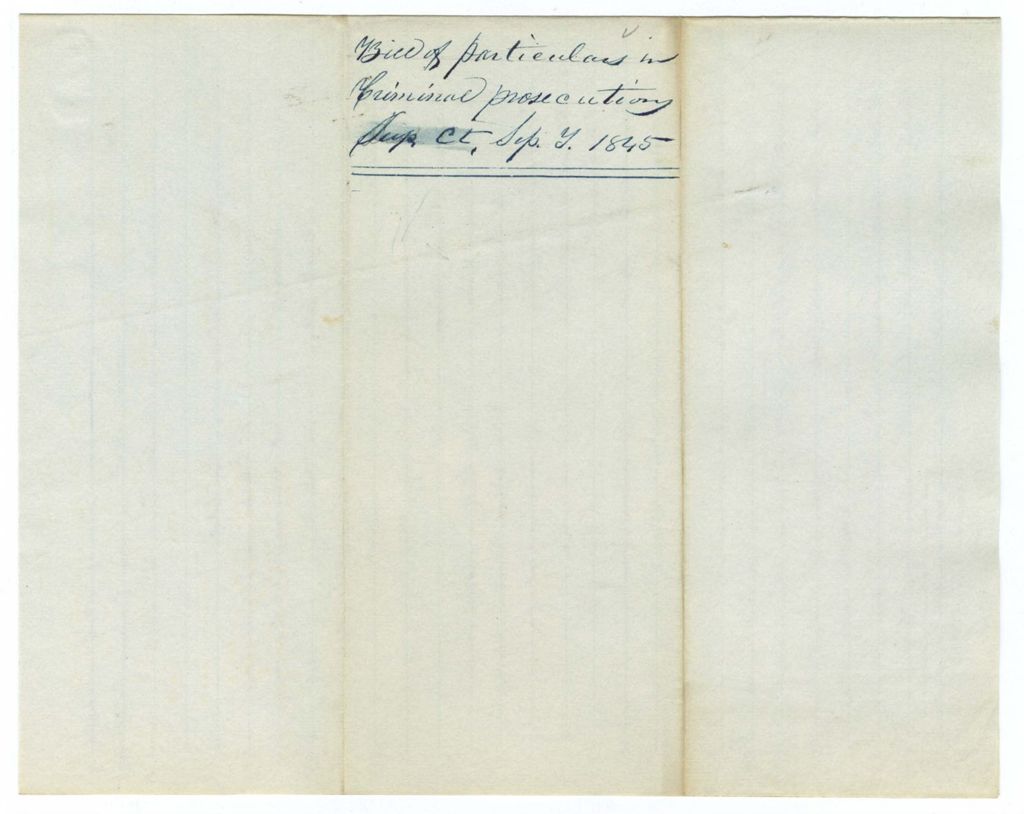 Bill of particulars in
Criminal prosecutions
Sup. Ct. Sep. T. 1845